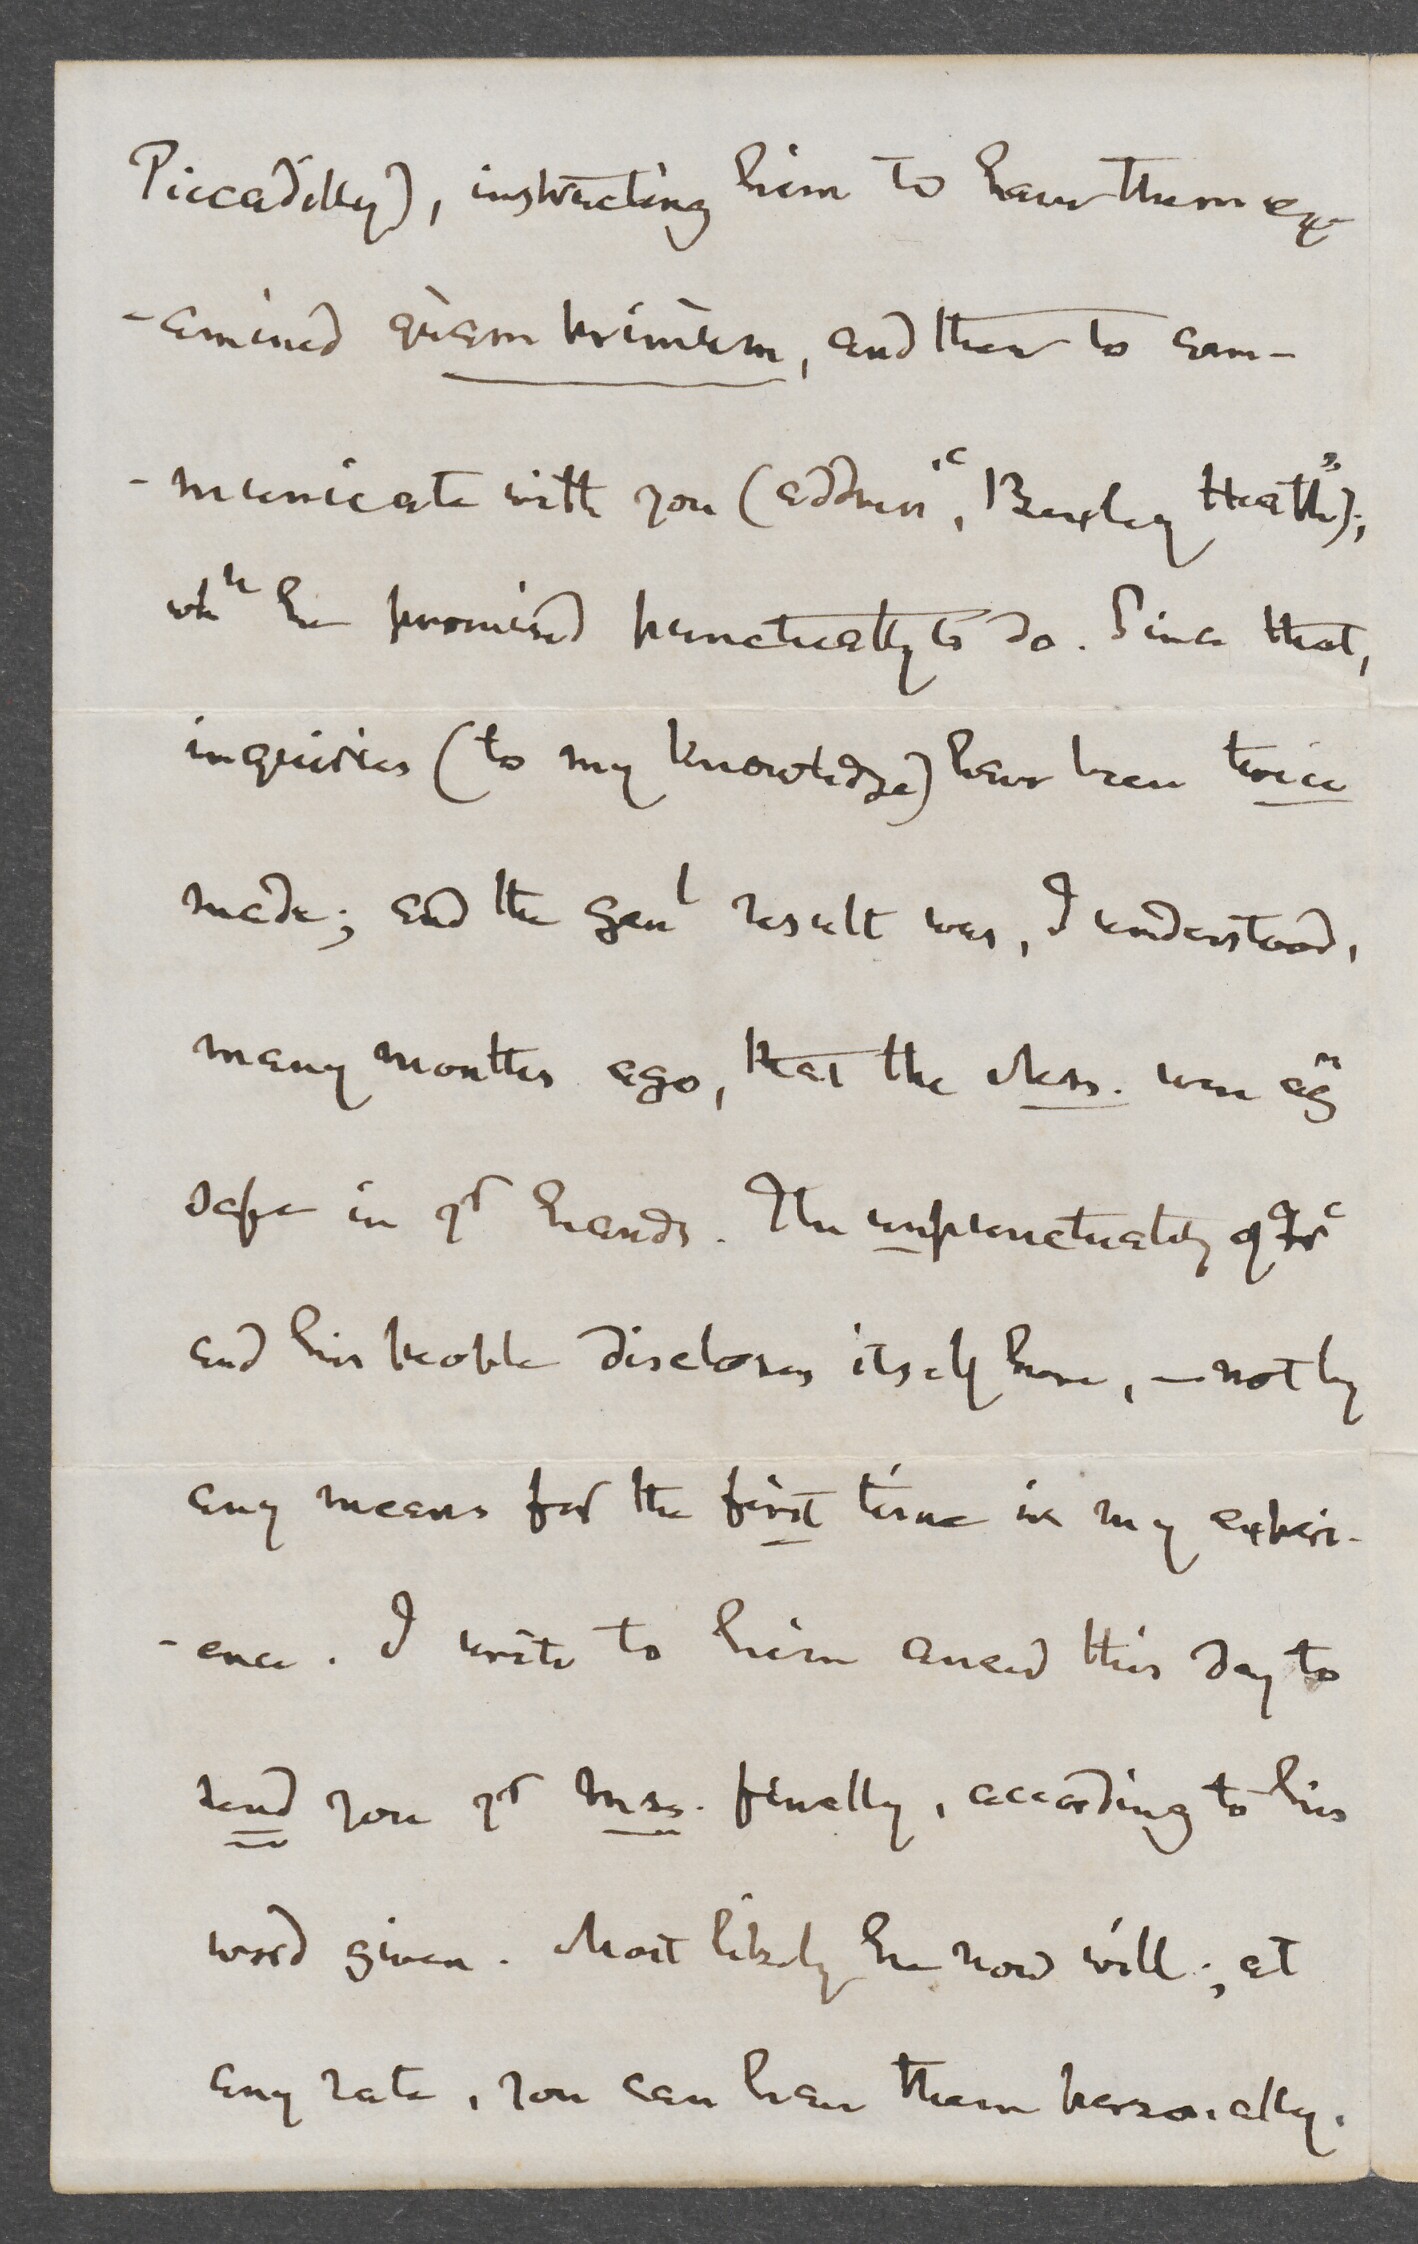 Piccadilly), instructing him to have them ex-
-amined quàm primùm, and then to com-
-municate with you (address, "Bexley Heath");
whh he promised punctually to do. Since that,
inquiries (to my knowledge) have been twice
made; and the genl result was, I understood,
many months ago, that the Mss. were agn
safe in yr hands. The unpunctuality of
and his people discloses itself here, — not by
any means for the first time in my experi-
-ence. I write to him anew this day to
send you yr Mss. finally, according to his
word given. Most likely he now will; at
any rate, you can have them personally.